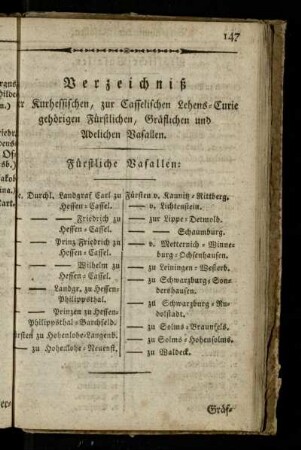 147
Verzeichniß
er Kurhessischen, zur Casselischen Lehens-Curie
gehörigen Fürstlichen, Gräflichen und
Adelichen Vasallen.
Fürstliche Vasallen:
e. Durchl. Landgraf Carl zu
Hessen-Cassel.
— — Friedrich zu
Hessen-Cassel.
— Prinz Friedrich zu
Hessen-Cassel.
— — Wilhelm zu
Hessen-Cassel.
— Landgr. zu Hessen-
Philippsthal.
— Prinzen zu Hessen-
Philippsthal-Barchfeld.
ürsten zu Hohenlohe-Langenb.
— zu Hohenlohe-Neuenst.
Fürsten v. Kaunitz-Rittberg.
— v. Lichtenstein.
— zur Lippe-Detmold.
— — Schaumburg.
— v. Metternich-Winne-
burg-Ochsenhausen.
— zu Leiningen-Westerb.
— zu Schwarzburg-Son-
dershausen.
— zu Schwarzburg-Ru-
dolstadt.
— zu Solms-Braunfels.
— zu Solms-Hohensolms.
— zu Waldeck.
Gräf-